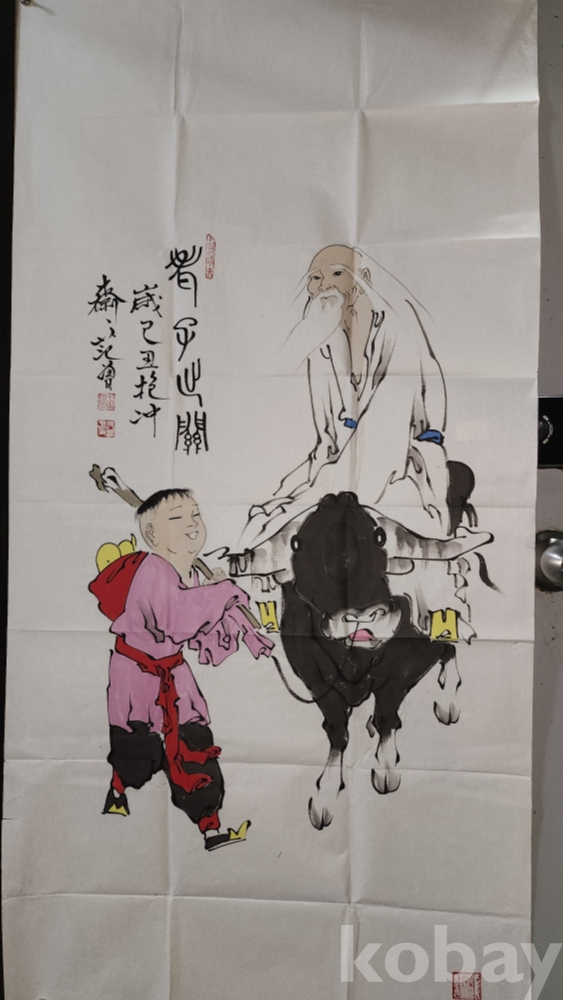 老子出關
歲己丑抱冲
齋之范曾
kobay